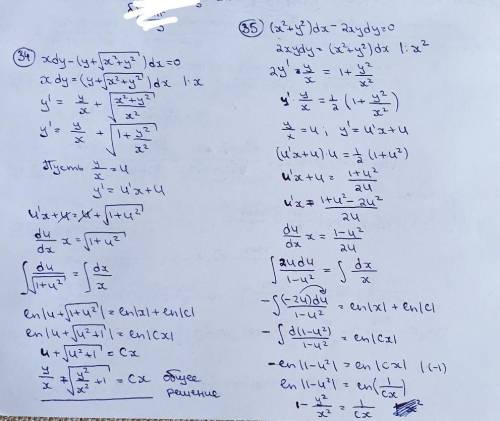 34) xdy-(y+√(x²+y²))dx=0
xdy=(y+√(x²+y²))dx |:x
y' = y/x + √((x²+y²)/x²)
y' = y/x + √((1+y²)/x²)
Пусть y/x = u
y' = u'x+u
u'x+u=u+√(1+u²)
du/dx x=√(1+u²)
∫ du/√(1+u²) = ∫ dx/x
ln|u+√(1+u²)|=ln|x|+ln|c|
ln|u+√(u²+1)|=ln|Cx|
u+√(u²+1)=Cx
y/x + √(y²/x²+1) = Cx общее решение
35) (x²+y²)dx-2xydy=0
2xydy=(x²+y²)dx |:x²
2y' · y/x = 1+ y²/x²
y' y/x = 1/2 (1+ y²/x²)
y/x = u; y'=u'x+u
(u'x+u)·u=1/2(1+u²)
u'x+u= (1+u²)/2u
u'x= (1+u²-2u²)/2u
du/dx x= (1-u²)/2u
∫ 2udu/(1-u²) = ∫ dx/x
-∫ (-2u)du/(1-u²) = ln|x|+ln|c|
-∫ d(1-u²)/(1-u²) = ln|Cx|
-ln|1-u²|=ln|Cx| |·(-1)
ln|1-u²|=ln(1/Cx)
1- y²/x² = 1/Cx